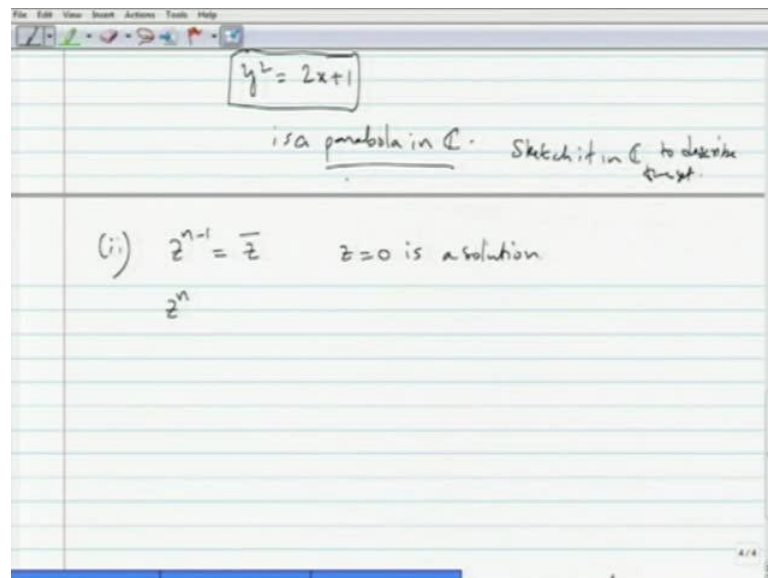 File Edit View Insert Actions Tools Help
y² = 2x+1
is a parabola in ℂ. Sketch it in ℂ to describe
the set.
(ii) z^{n-1} = z̄ z=0 is a solution.
z^n
4/4